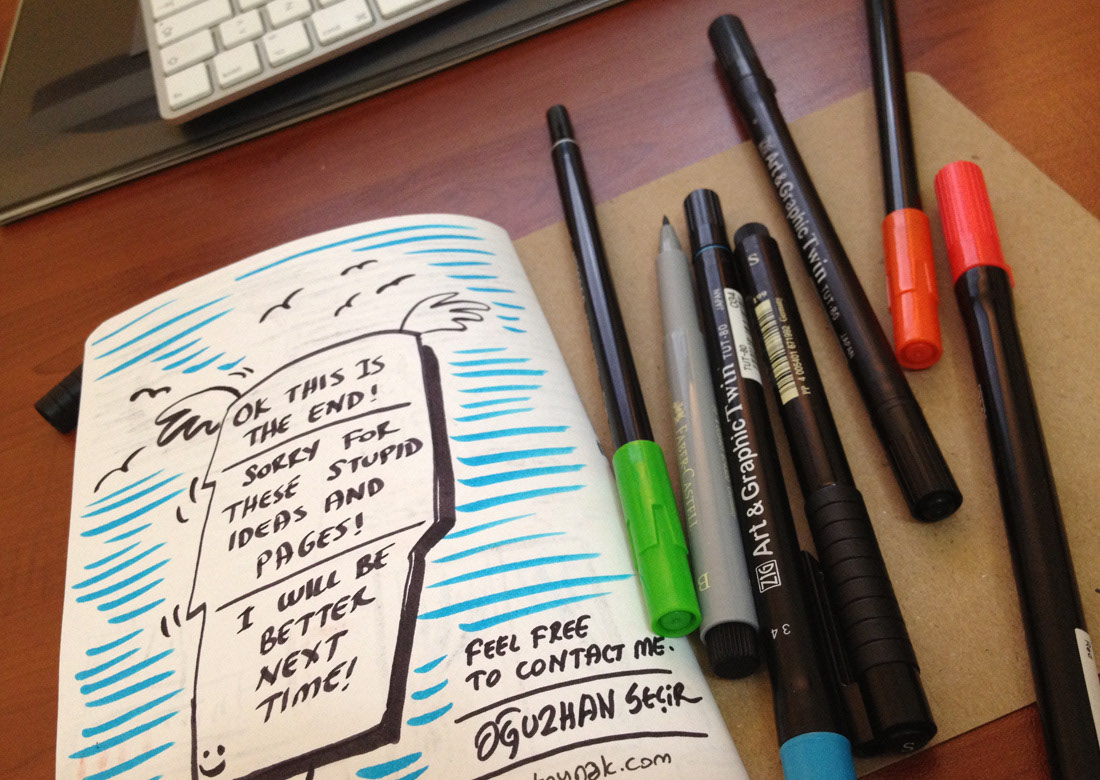 OK THIS IS
THE END!
SORRY FOR
THESE STUPID
IDEAS AND
PAGES!
I WILL BE
BETTER
NEXT
TIME!
FEEL FREE
TO CONTACT ME.
OĞUZHAN SEÇİR
B
ZIG Art & Graphic Twin TUT-80 JAPAN
34
S
PP 4 005401 671992 Germany
S
Art & Graphic Twin TUT-80 JAPAN
Red